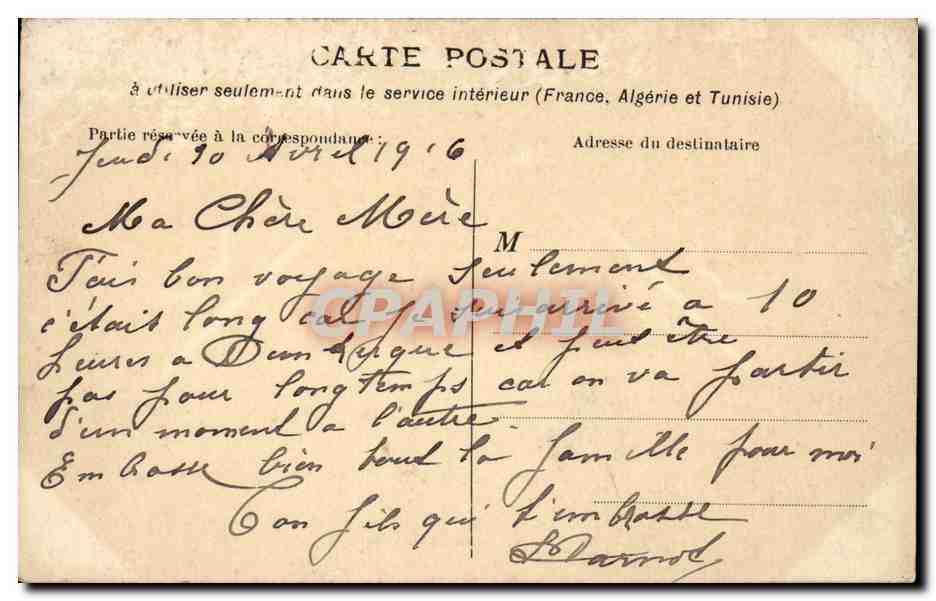 CARTE POSTALE
à utiliser seulement dans le service intérieur (France, Algérie et Tunisie)
Partie réservée à la correspondance:
Adresse du destinataire
Jeudi 20 Avril 1916
Ma Chère Mère
M
J'ais bon voyage seulement
c'était long car je sui arrivé a 10
heures a Dunkerque et peut être
pas pour longtemps car on va partir
d'un moment a l'autre.
Embrasse bien tout la famille pour moi
Ton fils qui t'embrasse
CPAPHIL